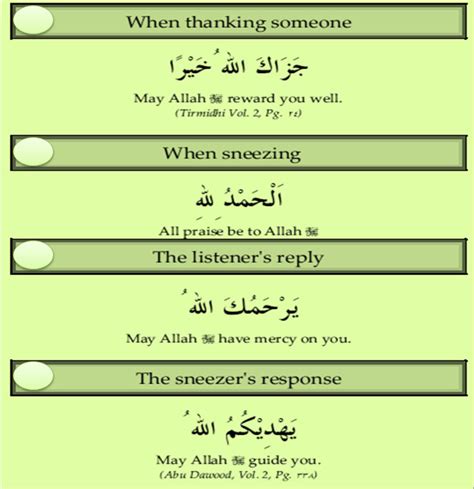 When thanking someone
جَزَاكَ اللهُ خَيْرًا
May Allah ﷻ reward you well.
(Tirmidhi Vol. 2, Pg. ٢٤)
When sneezing
اَلْحَمْدُ لِلهِ
All praise be to Allah ﷻ
The listener's reply
يَرْحَمُكَ اللهُ
May Allah ﷻ have mercy on you.
The sneezer's response
يَهْدِيْكُمُ اللهُ
May Allah ﷻ guide you.
(Abu Dawood, Vol. 2, Pg. ٣٣٨)